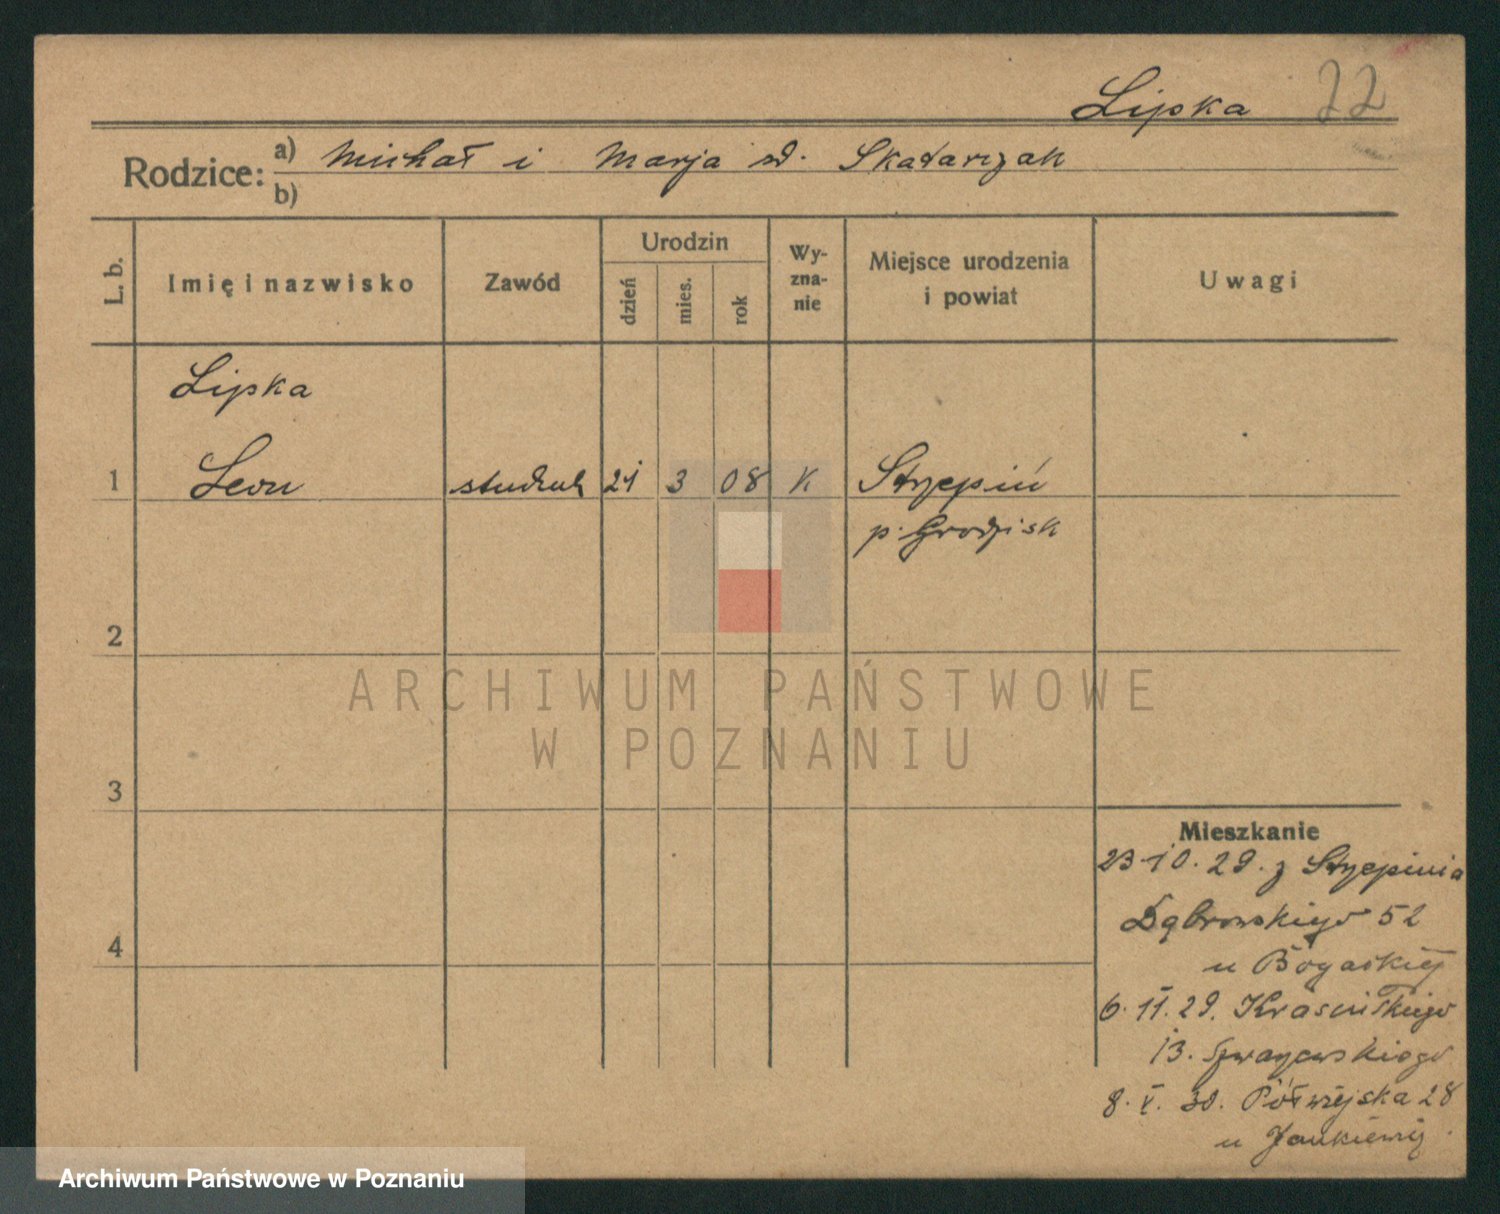 Lipska 22
Rodzice: a) Michał i Marja
b)
L. b. Imię i nazwisko Zawód Urodzin dzień mies. rok Wy-zna-nie Miejsce urodzenia i powiat Uwagi
Lipska
1 Leon student 21 3 08 K Strzępiń
p. Grodzisk
2
3
4
ARCHIWUM PAŃSTWOWE
W POZNANIU
Mieszkanie
23.10.29. z Strzępinia
Dąbrowskiego 52
u
6.11.29. Krasińskiego
13.
8.V.30. Półwiejska 28
u
Archiwum Państwowe w Poznaniu